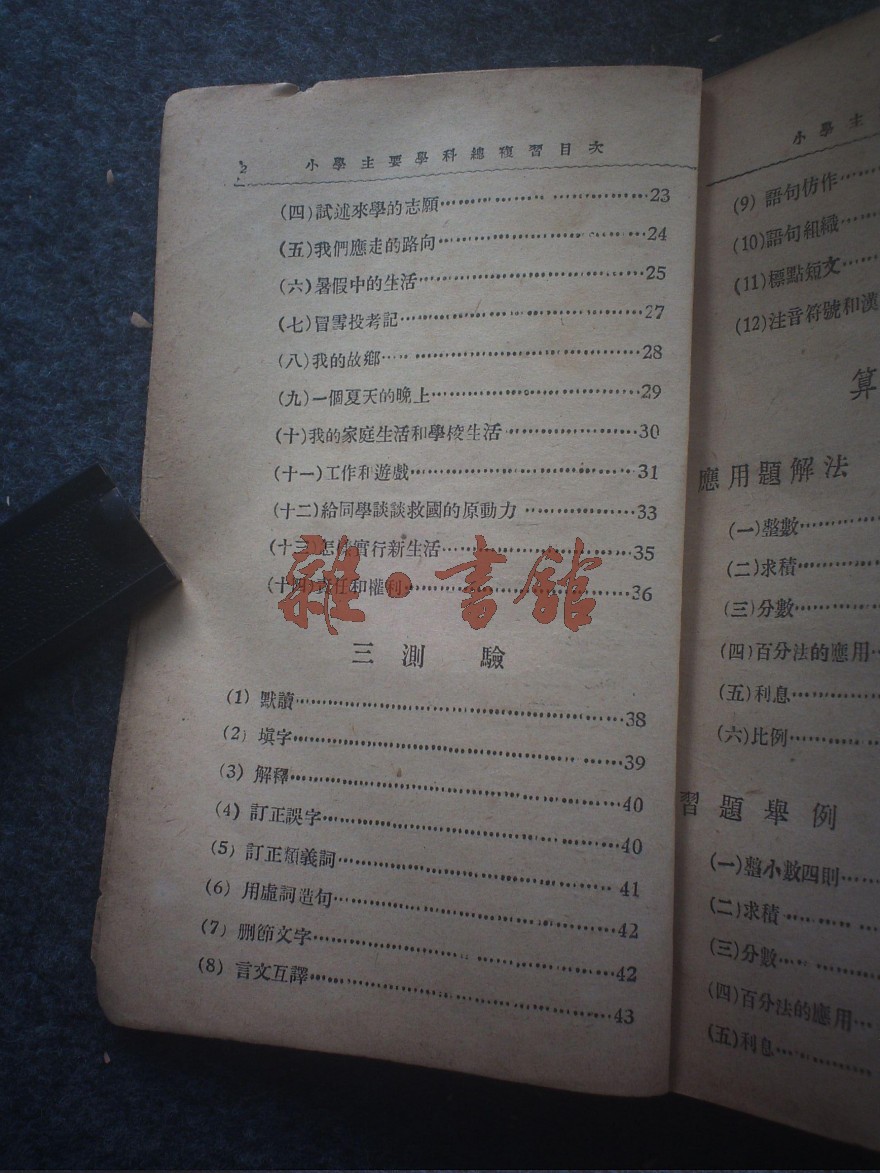 2 小學主要學科總複習目次
(四)試述來學的志願………………………23
(五)我們應走的路向………………………24
(六)暑假中的生活………………………25
(七)冒雪投考記………………………27
(八)我的故鄉………………………28
(九)一個夏天的晚上………………………29
(十)我的家庭生活和學校生活………………30
(十一)工作和遊戲………………………31
(十二)給同學談談救國的原動力………………33
(十三)怎樣實行新生活………………………35
(十四)責任和權利………………………36
雜·書館
三 測 驗
(1) 默讀………………………38
(2) 填字………………………39
(3) 解釋………………………40
(4) 訂正誤字………………………40
(5) 訂正類義詞………………………41
(6) 用虛詞造句………………………42
(7) 刪節文字………………………42
(8) 言文互譯………………………43
小學主
(9) 語句仿作……
(10)語句組織……
(11)標點短文……
(12)注音符號和漢
算
應用題解法
(一)整數……
(二)求積……
(三)分數……
(四)百分法的應用…
(五)利息……
(六)比例……
習題舉例
(一)整小數四則……
(二)求積……
(三)分數……
(四)百分法的應用…
(五)利息……